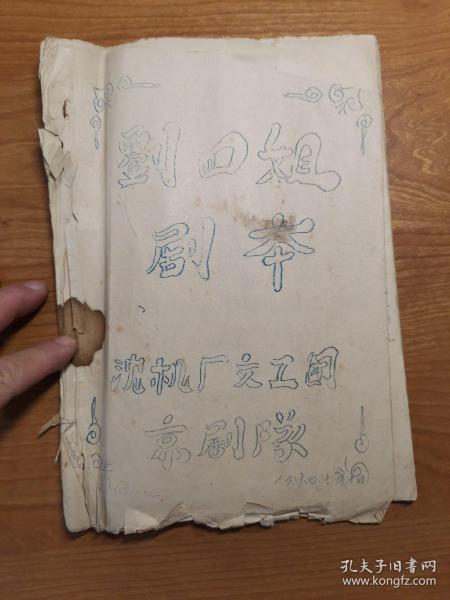 劉四姐
剧本
沈机厂文工团
京剧队
孔夫子旧书网
www.kongfz.com